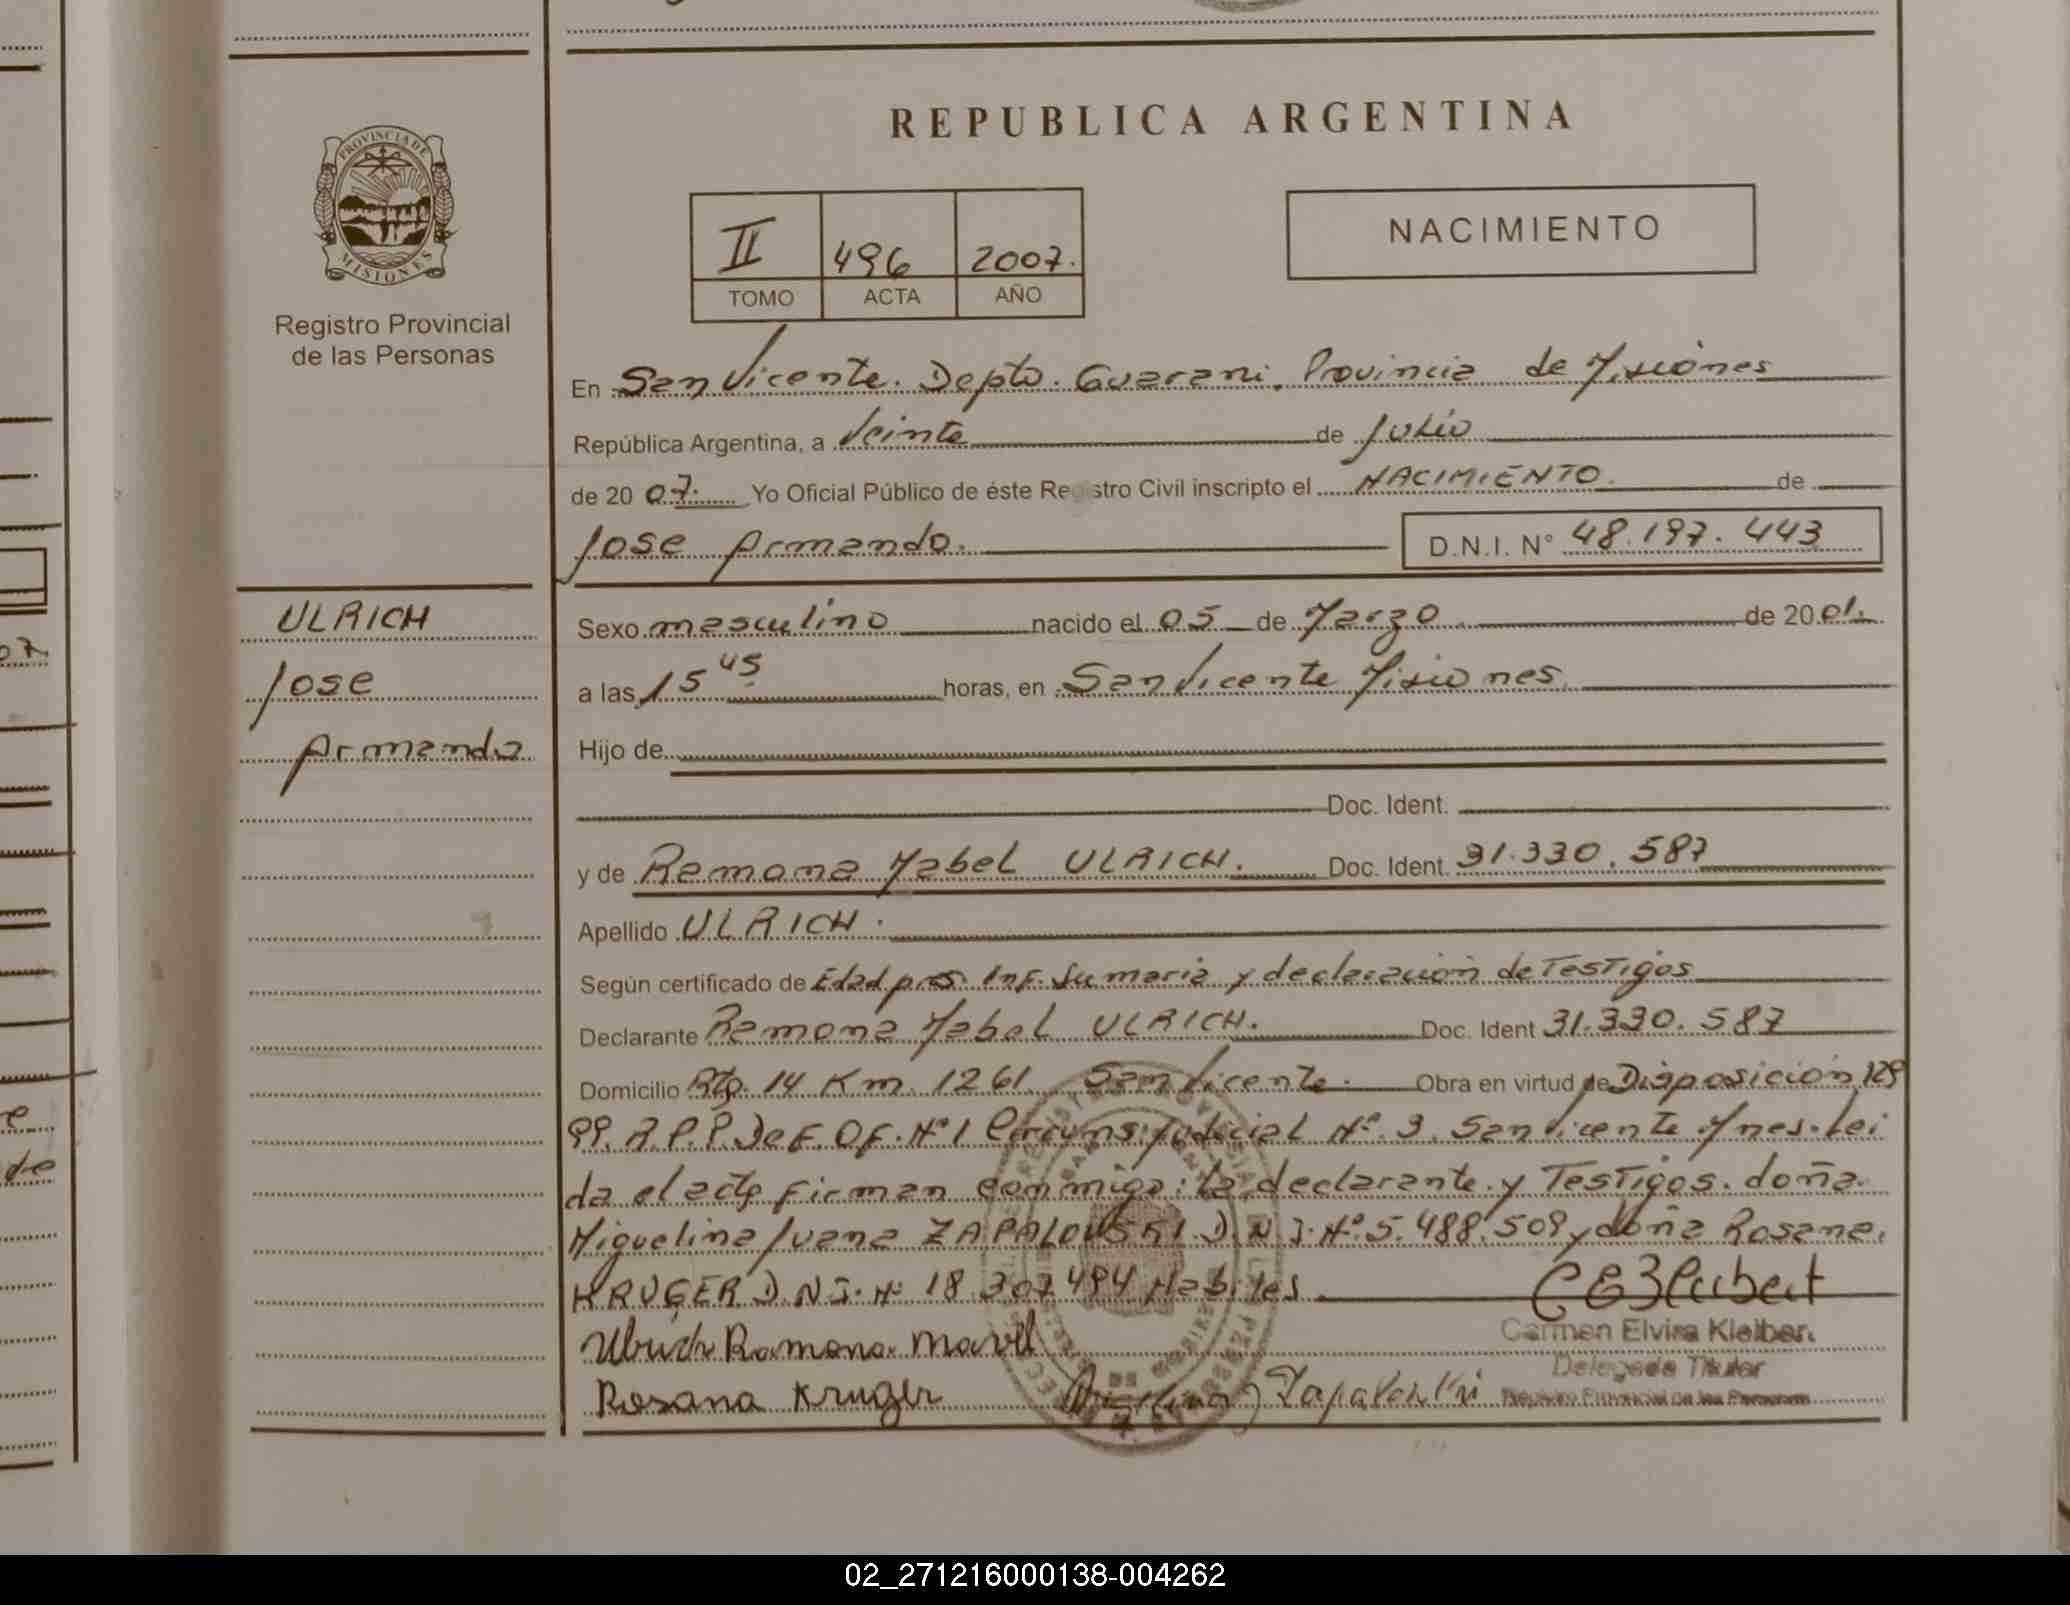 REPUBLICA ARGENTINA
PROVINCIA DE MISIONES
Registro Provincial
de las Personas
II 496 2007.
TOMO ACTA AÑO
NACIMIENTO
En San Vicente. Depto. Guarani. Provincia de Misiones
República Argentina, a Veinte de Julio
de 20 07. Yo Oficial Público de éste Registro Civil inscripto el NACIMIENTO. de
Jose Armando. D.N.I. N° 48.197.443
ULRICH
Jose
Armando
Sexo masculino nacido el 05 de Marzo de 20 01.
a las 15 45 horas, en San Vicente Misiones.
Hijo de
Doc. Ident.
y de Ramona Mabel ULRICH. Doc. Ident. 31.330.587
Apellido ULRICH.
Según certificado de Edad pres. Inf. Sumaria y declaracion de Testigos
Declarante Ramona Mabel ULRICH. Doc. Ident 31.330.587
Domicilio Rta. 14 Km. 1261 San Vicente. Obra en virtud de Disposición 129
99. R.P.P. De F. OF. N° 1 Circuns. Judicial N° 3. San Vicente Mnes. Lei
da el acta firman conmigo: la declarante y Testigos. doña
Miguelina Juana ZAPALOWSKI D.N.I. N° 5.488.509 y doña Rosana
KRUGER D.N.I. N° 18.307.494 Habiles
Ulrich Ramona Mavel
Carmen Elvira Kleiber
Delegada Titular
Registro Provincial de las Personas
Rosana Kruger
02_271216000138-004262